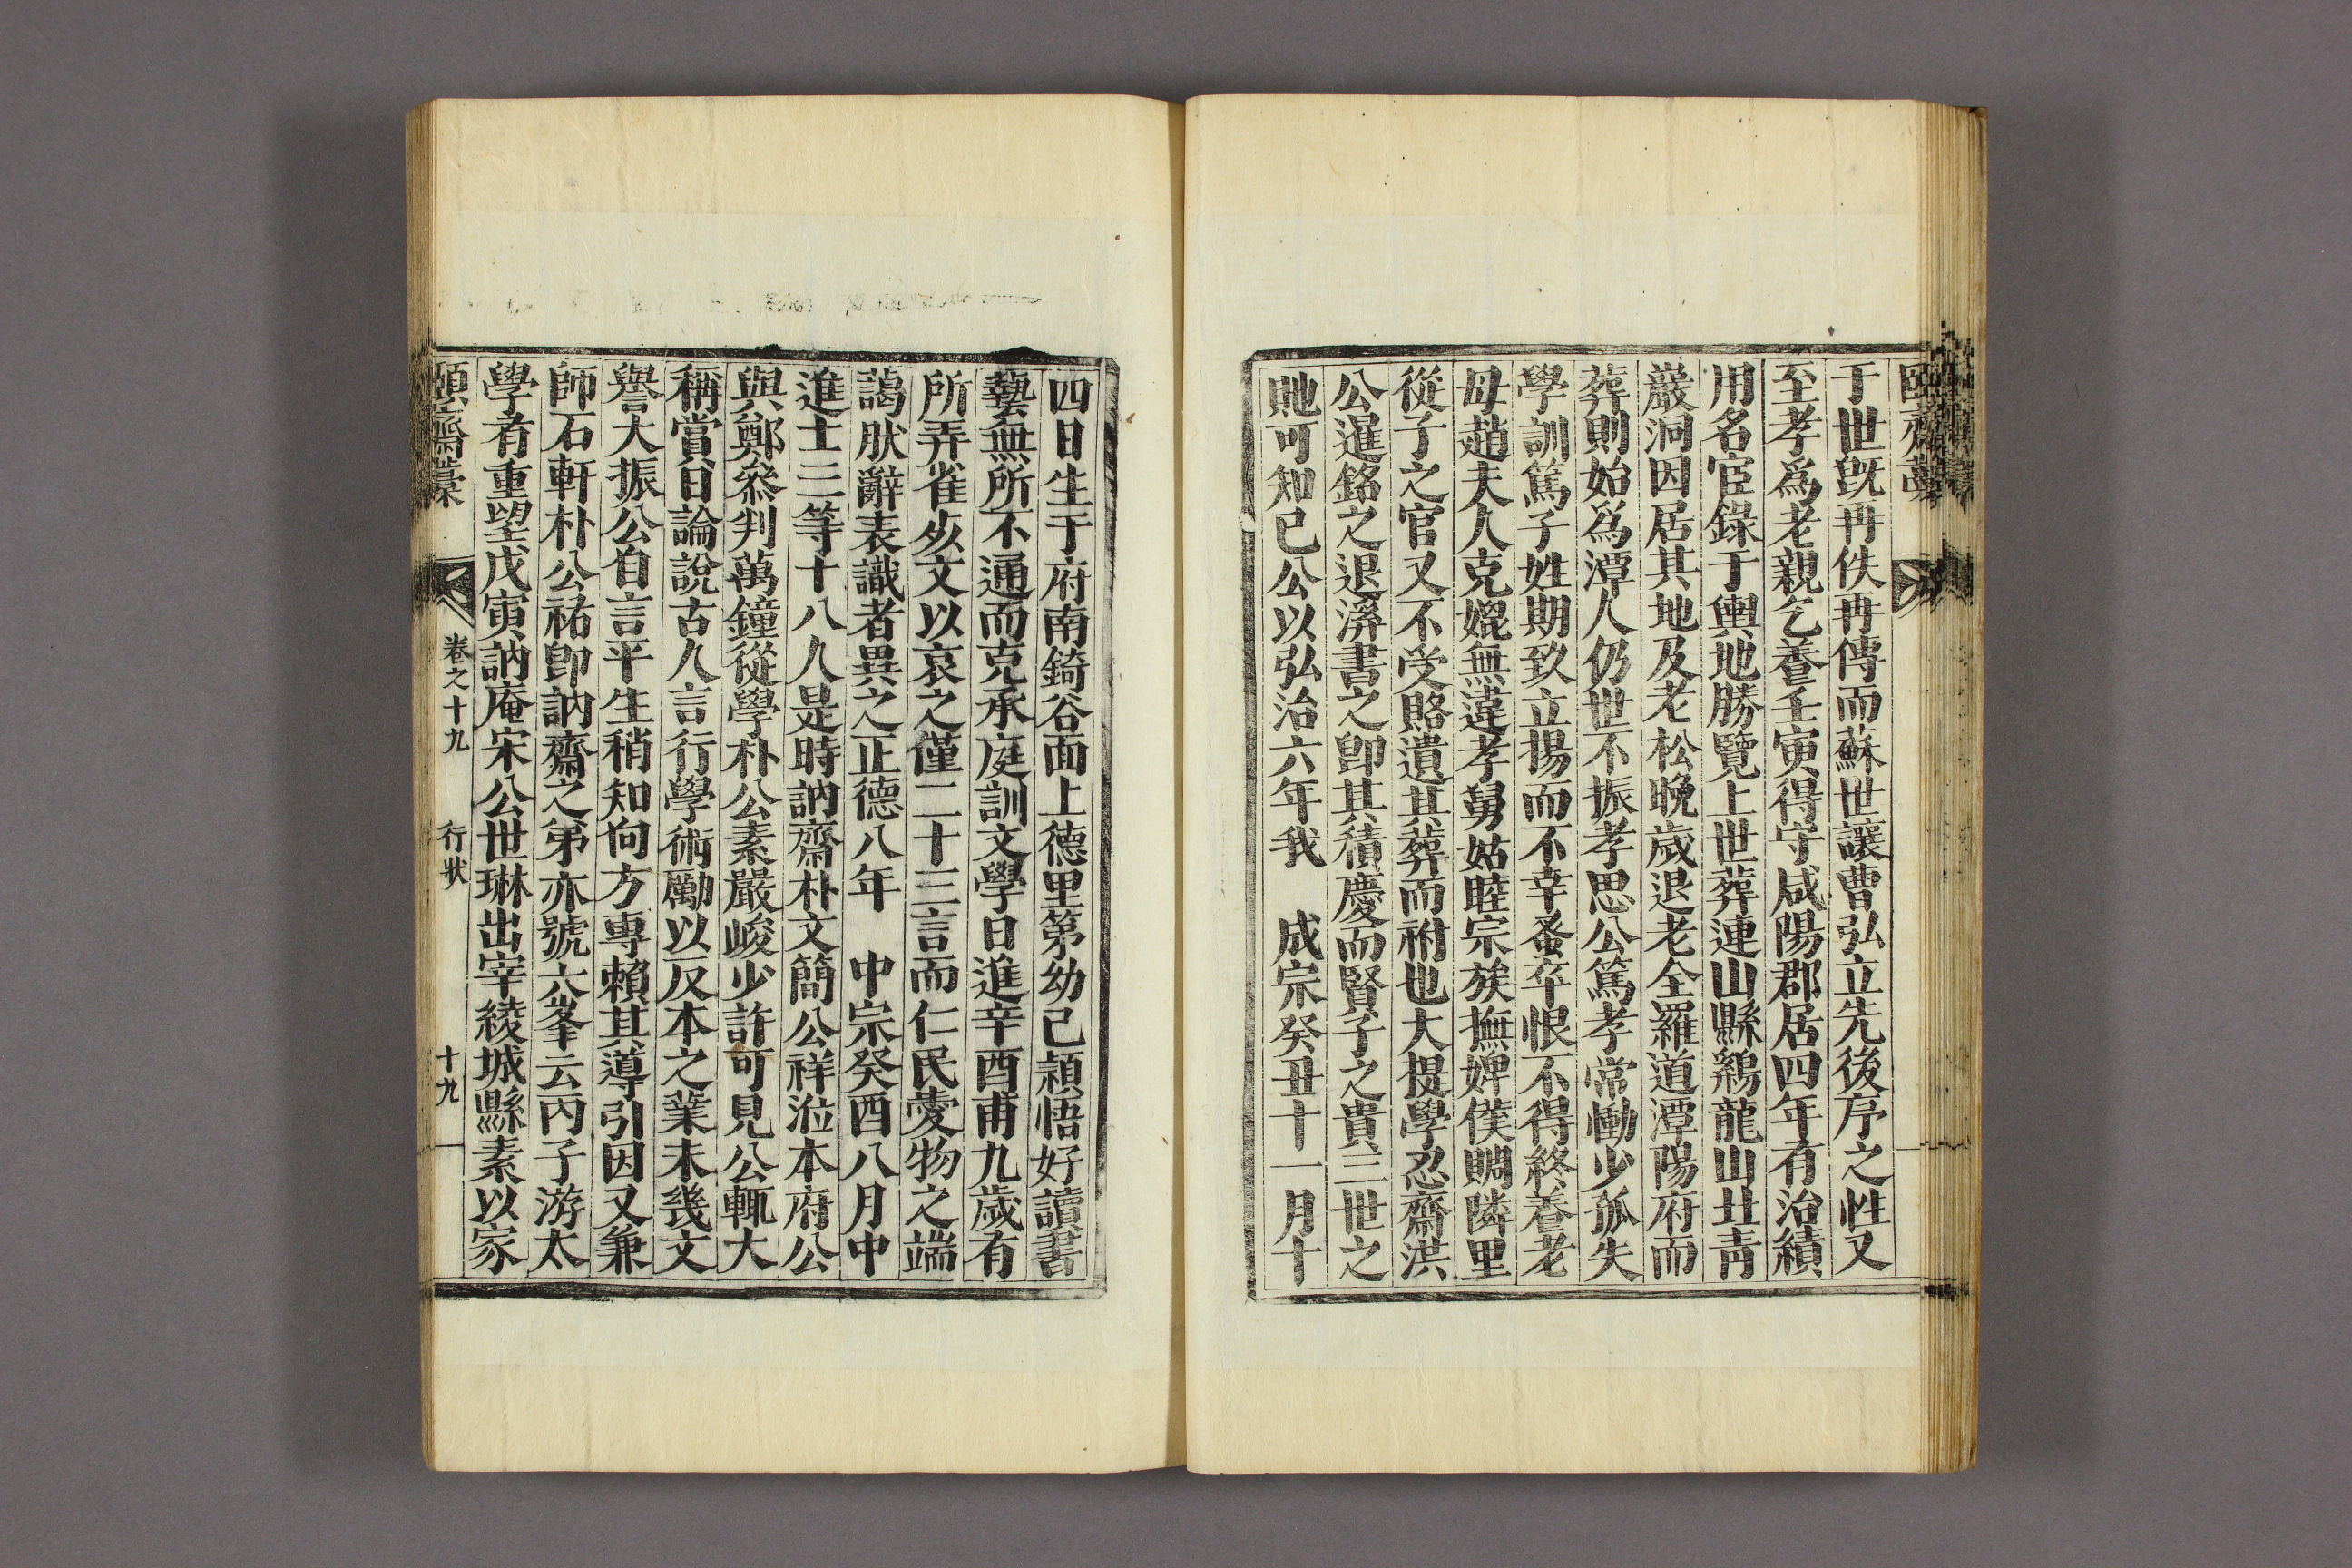 頤齋藁
于世旣再佚再傳而蘇世讓曹弘立先後序之性又
至孝爲老親乞養壬寅得守咸陽郡居四年有治績
用名宦錄于輿地勝覽上世葬連山縣鷄龍山北靑
巖洞因居其地及老松晩歲退老全羅道潭陽府而
葬則始爲潭人仍世不振孝思公篤孝常慟少孤失
學訓篤子姓期致立揚而不幸蚤卒恨不得終養老
母趙夫人克媲無違孝舅姑睦宗族撫婢僕賙隣里
從子之官又不受賂遺其葬而祔也大提學忍齋洪
公暹銘之退溪書之卽其積慶而賢子之貴三世之
貤可知已公以弘治六年我　成宗癸丑十一月十
四日生于府南錡谷面上德里第幼已穎悟好讀書
藝無所不通而克承庭訓文學日進辛酉甫九歲有
所弄雀死文以哀之僅二十三言而仁民愛物之端
藹肰辭表識者異之正德八年　中宗癸酉八月中
進士三等十八人是時訥齋朴文簡公祥涖本府公
與鄭叅判萬鐘從學朴公素嚴峻少許可見公輒大
稱賞日論說古人言行學術勵以反本之業未幾文
譽大振公自言平生稍知向方專賴其導引因又兼
師石軒朴公祐卽訥齋之弟亦號六峯云丙子游太
學有重望戊寅訥庵宋公世琳出宰綾城縣素以家
頤齋藁
卷之十九
行狀
十九